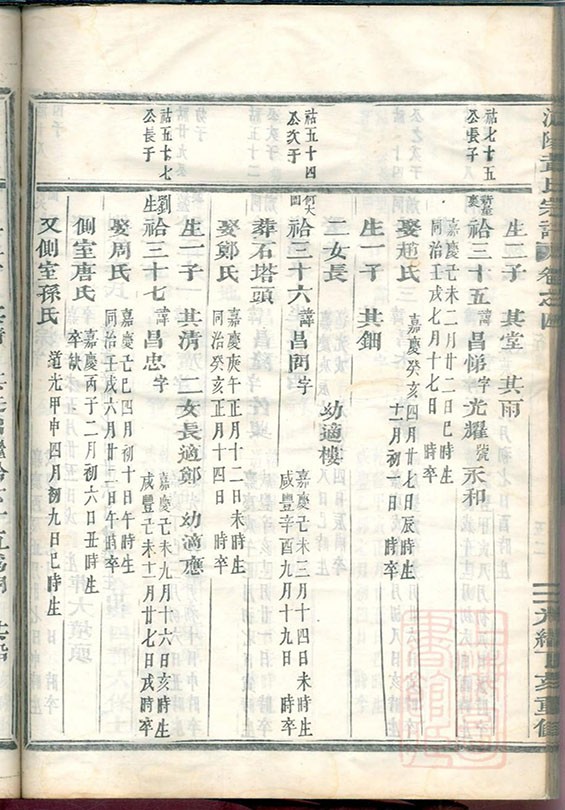 宗譜 卷之四
光緒丁亥重修
祜七十五公長子
生二子 其堂 其雨
祫三十五 諱昌悌 字光耀 號永和
嘉慶己未二月廿二日巳時生
同治壬戌七月十七日 時卒
娶趙氏
嘉慶癸亥四月廿七日辰時生
十二月初一日 時卒
生一子 其鈿
二女長 幼適樓
祜五十四公次子
祫三十六 諱昌 字
嘉慶己未三月十四日未時生
咸豐辛酉九月十九日 時卒
葬石塔頭
娶鄭氏
嘉慶庚午正月十二日未時生
同治癸亥正月十四日 時卒
生一子 其清 二女長適鄭 幼適應
祜五十七公長子
祫三十七 諱昌忠 字
嘉慶己未九月十六日亥時生
咸豐己未十一月廿七日戌時卒
娶周氏
嘉慶己巳四月初十日午時生
同治壬戌六月廿二日午時卒
側室唐氏
嘉慶丙子二月初六日丑時生
卒缺
又側室孫氏
道光甲申四月初九日巳時生